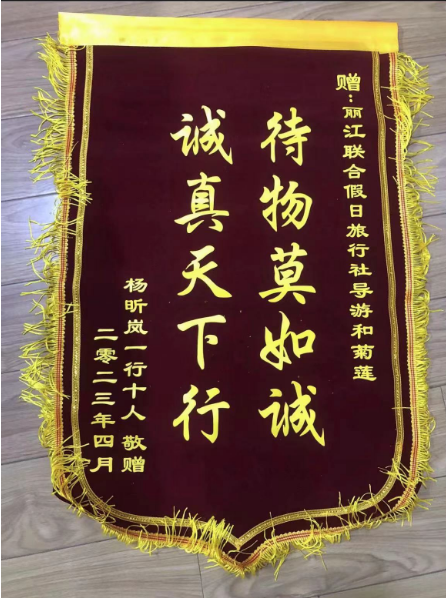 赠：丽江联合假日旅行社导游和菊莲
待物莫如诚
诚真天下行
杨昕岚一行十人 敬赠
二零二三年四月